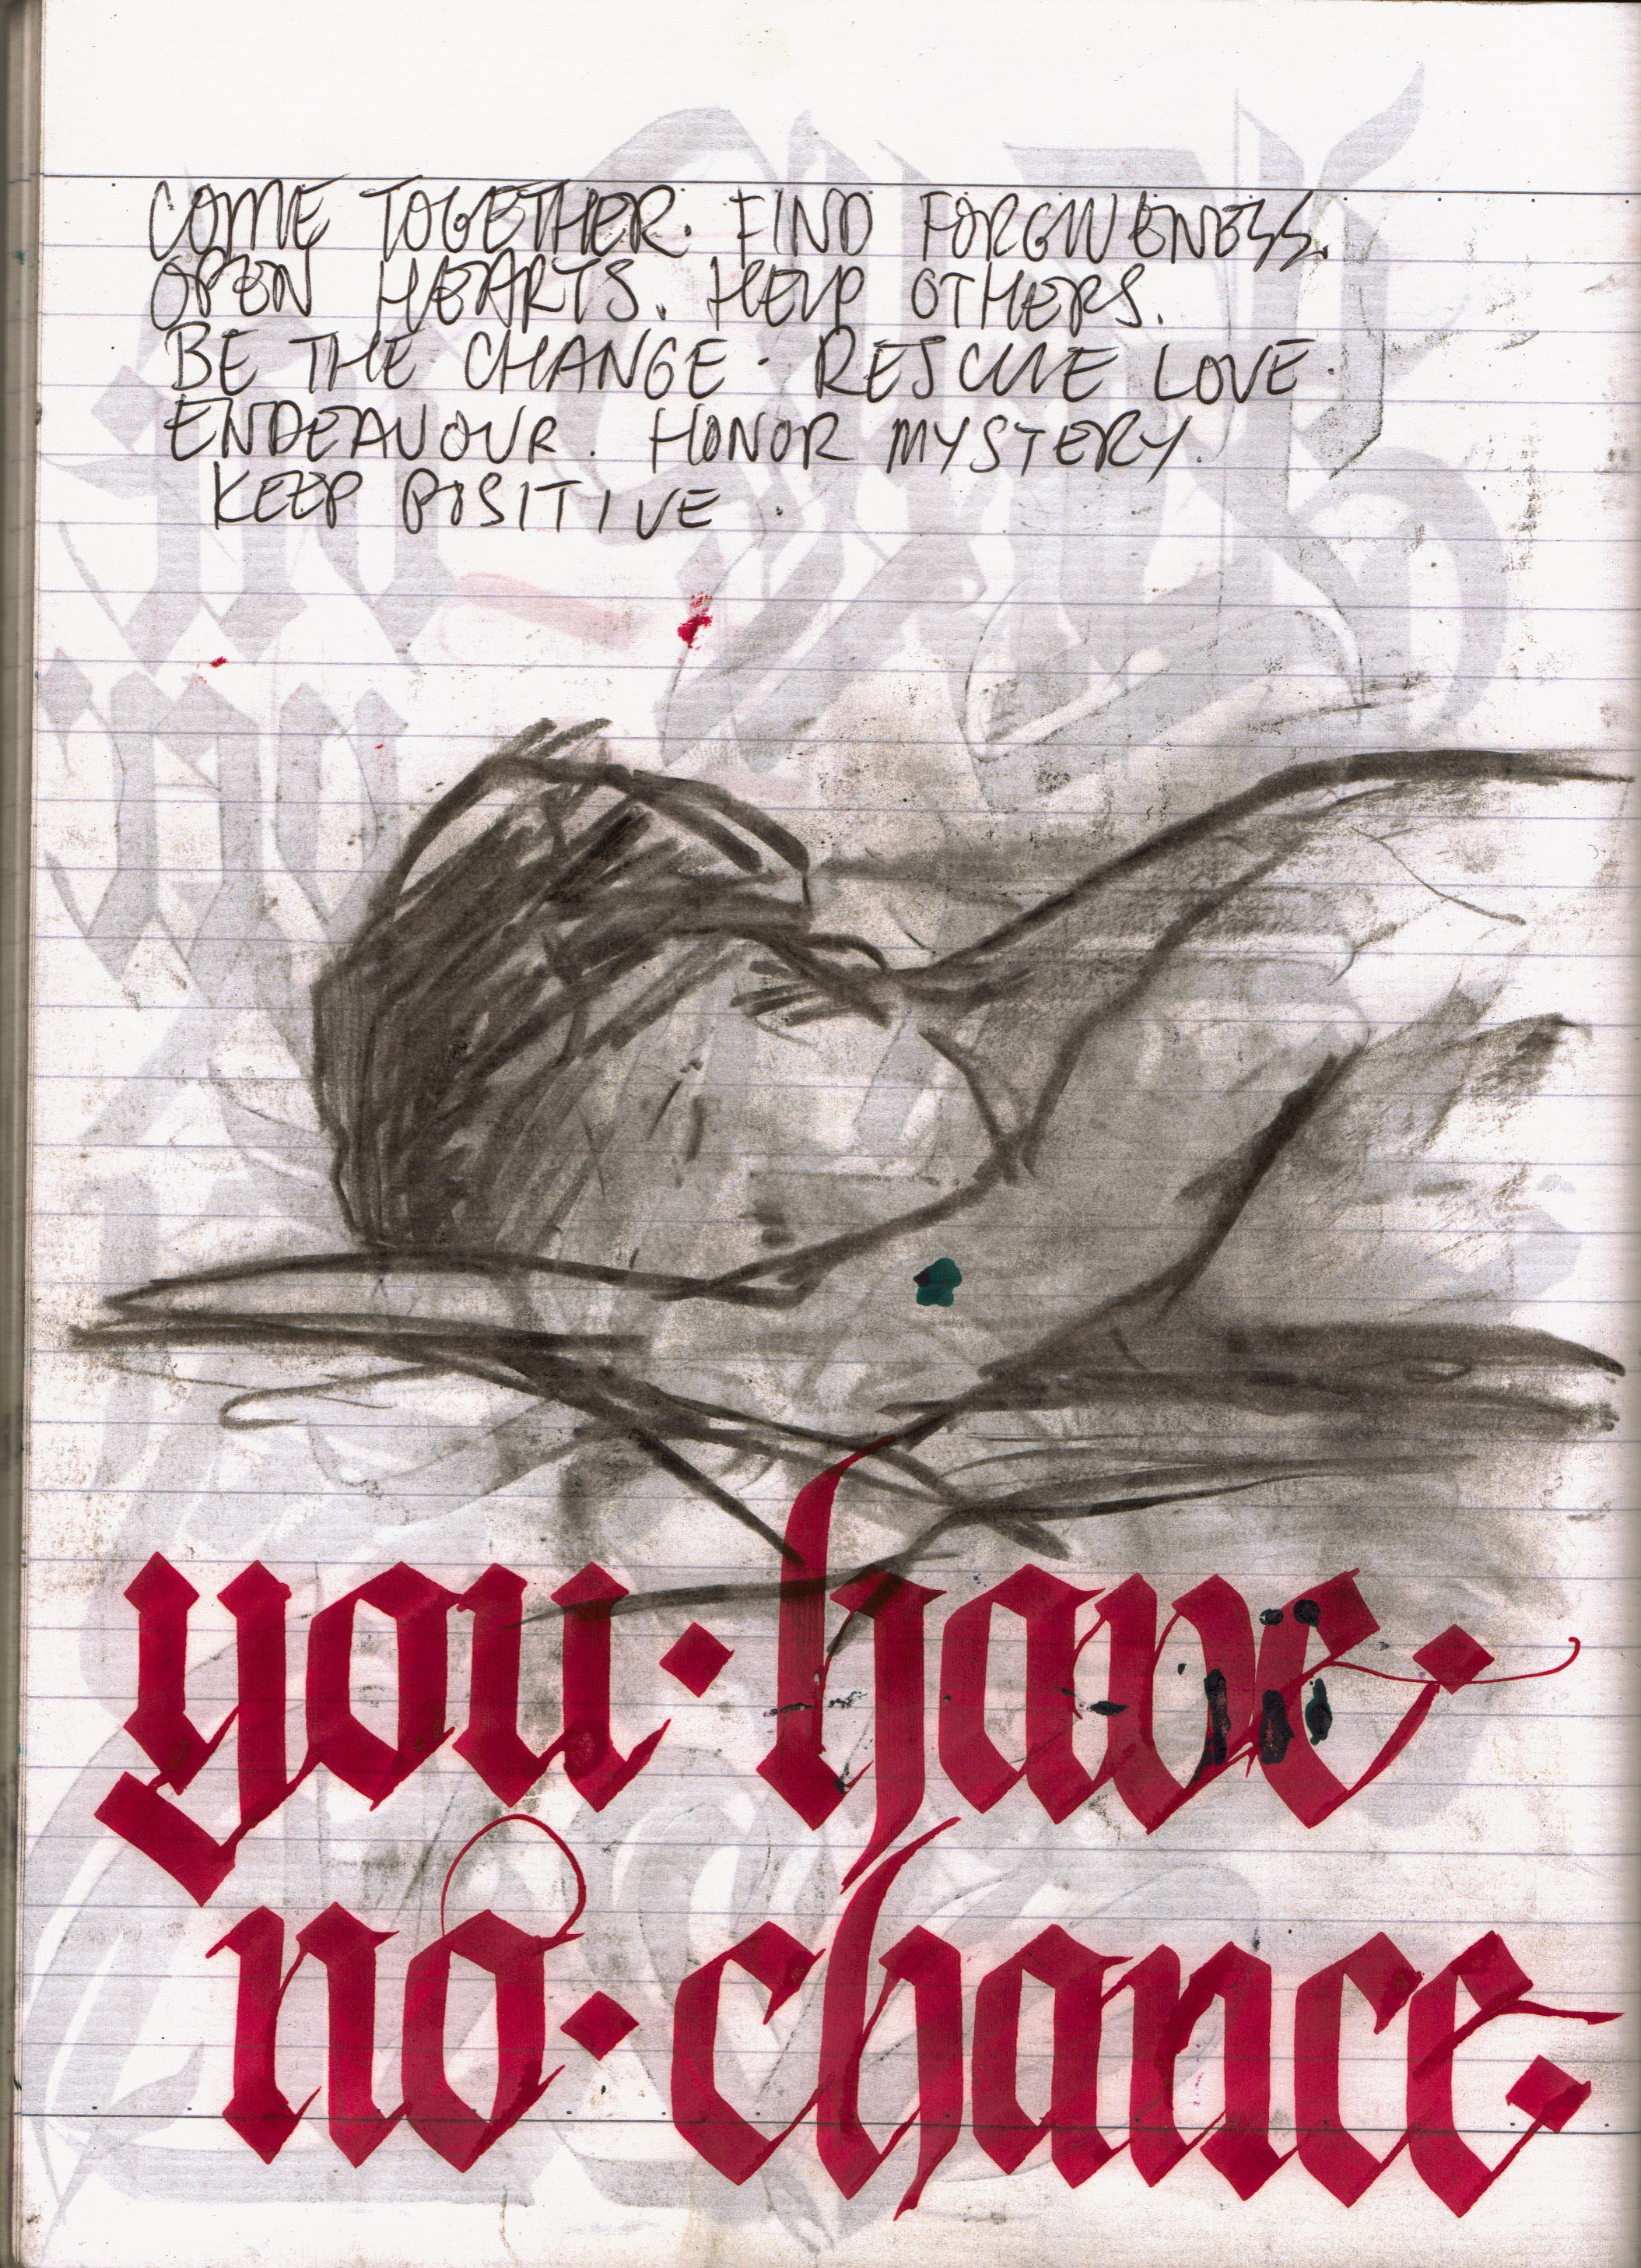 COME TOGETHER. FIND FORGIVENESS.
OPEN HEARTS. HELP OTHERS.
BE THE CHANGE. RESCUE LOVE.
ENDEAVOUR. HONOR MYSTERY.
KEEP POSITIVE.
you · have ·
no · chance.